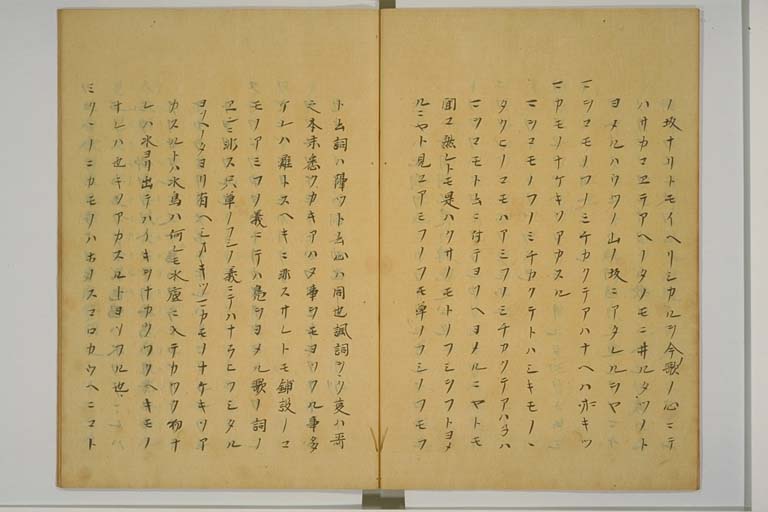 ノ坂ナリトモイヘリシカルヲ今歌ノ心ニテ
ハサカコヱテアヘノタノモニ井ルタツノト
ヨメルハワツノ山ノ坂ニアタレルヲヤ
マシコモノフノミチカクテアハナヘハホキツ
マカモノナケキソアカスル
マシコモノフノミチカクテトハシキモノヽ
タクヒノコモハアミフノミチカクテアハヌハ
マシコモトムニ付テヨソヘヨメルニヤトモ
聞ユ然レトモ是ハクサノモトノフシヲフトヨメ
ルニヤト見ユアミフノフモ草ノフシノフモフ
ト云詞ハ隠ツト云心ハ同也諷詞ヲツ夏ハ哥
之本末悉ツカキアハヌ事シモヨリクル事多
ケレハ難トスヘキニ非スサレトモ鋪設ノコ
モノアミフノ義ニテハ意ヲヨメル歌ノ詞ノ
ヱンニ非ス只草ノフシノ義ニテハナラヒフシタル
ヨソヘタヨリ有ヘシオキツマカモノナケキソア
カスルトハ水鳥ハ何レモ水底ニ入テカツク物ナ
レハ水ヨリ出テハイキツナカクツクヘキモノ
ナレハ也キソアカスルトヨソフル也
ミツヘノニカモノハホノスコロカウヘニコト